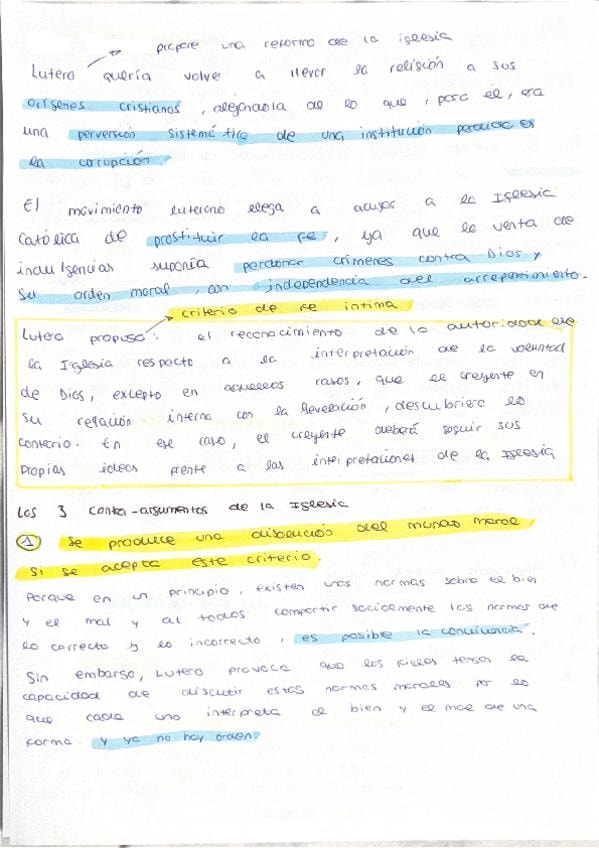 propone una reforma de la iglesia
Lutero quería volver a llevar la religión a sus
orígenes cristianos, alejándola de lo que, para él, era
una perversión sistemática de una institución
la corrupción.
El movimiento luterano llega a acusar a la Iglesia
Católica de prostituir la fe, ya que la venta de
indulgencias suponía perdonar crímenes contra Dios y
su orden moral, con independencia del arrepentimiento.
criterio de fe íntima
Lutero propuso: el reconocimiento de la autoridad de
la Iglesia respecto a la interpretación de la voluntad
de Dios, excepto en aquellos casos, que el creyente en
su relación interna con la Revelación, descubriera lo
contrario. En ese caso, el creyente deberá seguir sus
propias ideas frente a las interpretaciones de la Iglesia
Los 3 contra-argumentos de la Iglesia
1 Se produce una disolución del mundo moral
si se acepta este criterio.
Porque en un principio, existen unas normas sobre el bien
y el mal y al todos compartir socialmente las normas de
lo correcto y lo incorrecto, es posible la convivencia.
Sin embargo, Lutero provoca que los fieles tengan la
capacidad de discutir estas normas morales por lo
que cada uno interpreta el bien y el mal de una
forma. y ya no hay orden